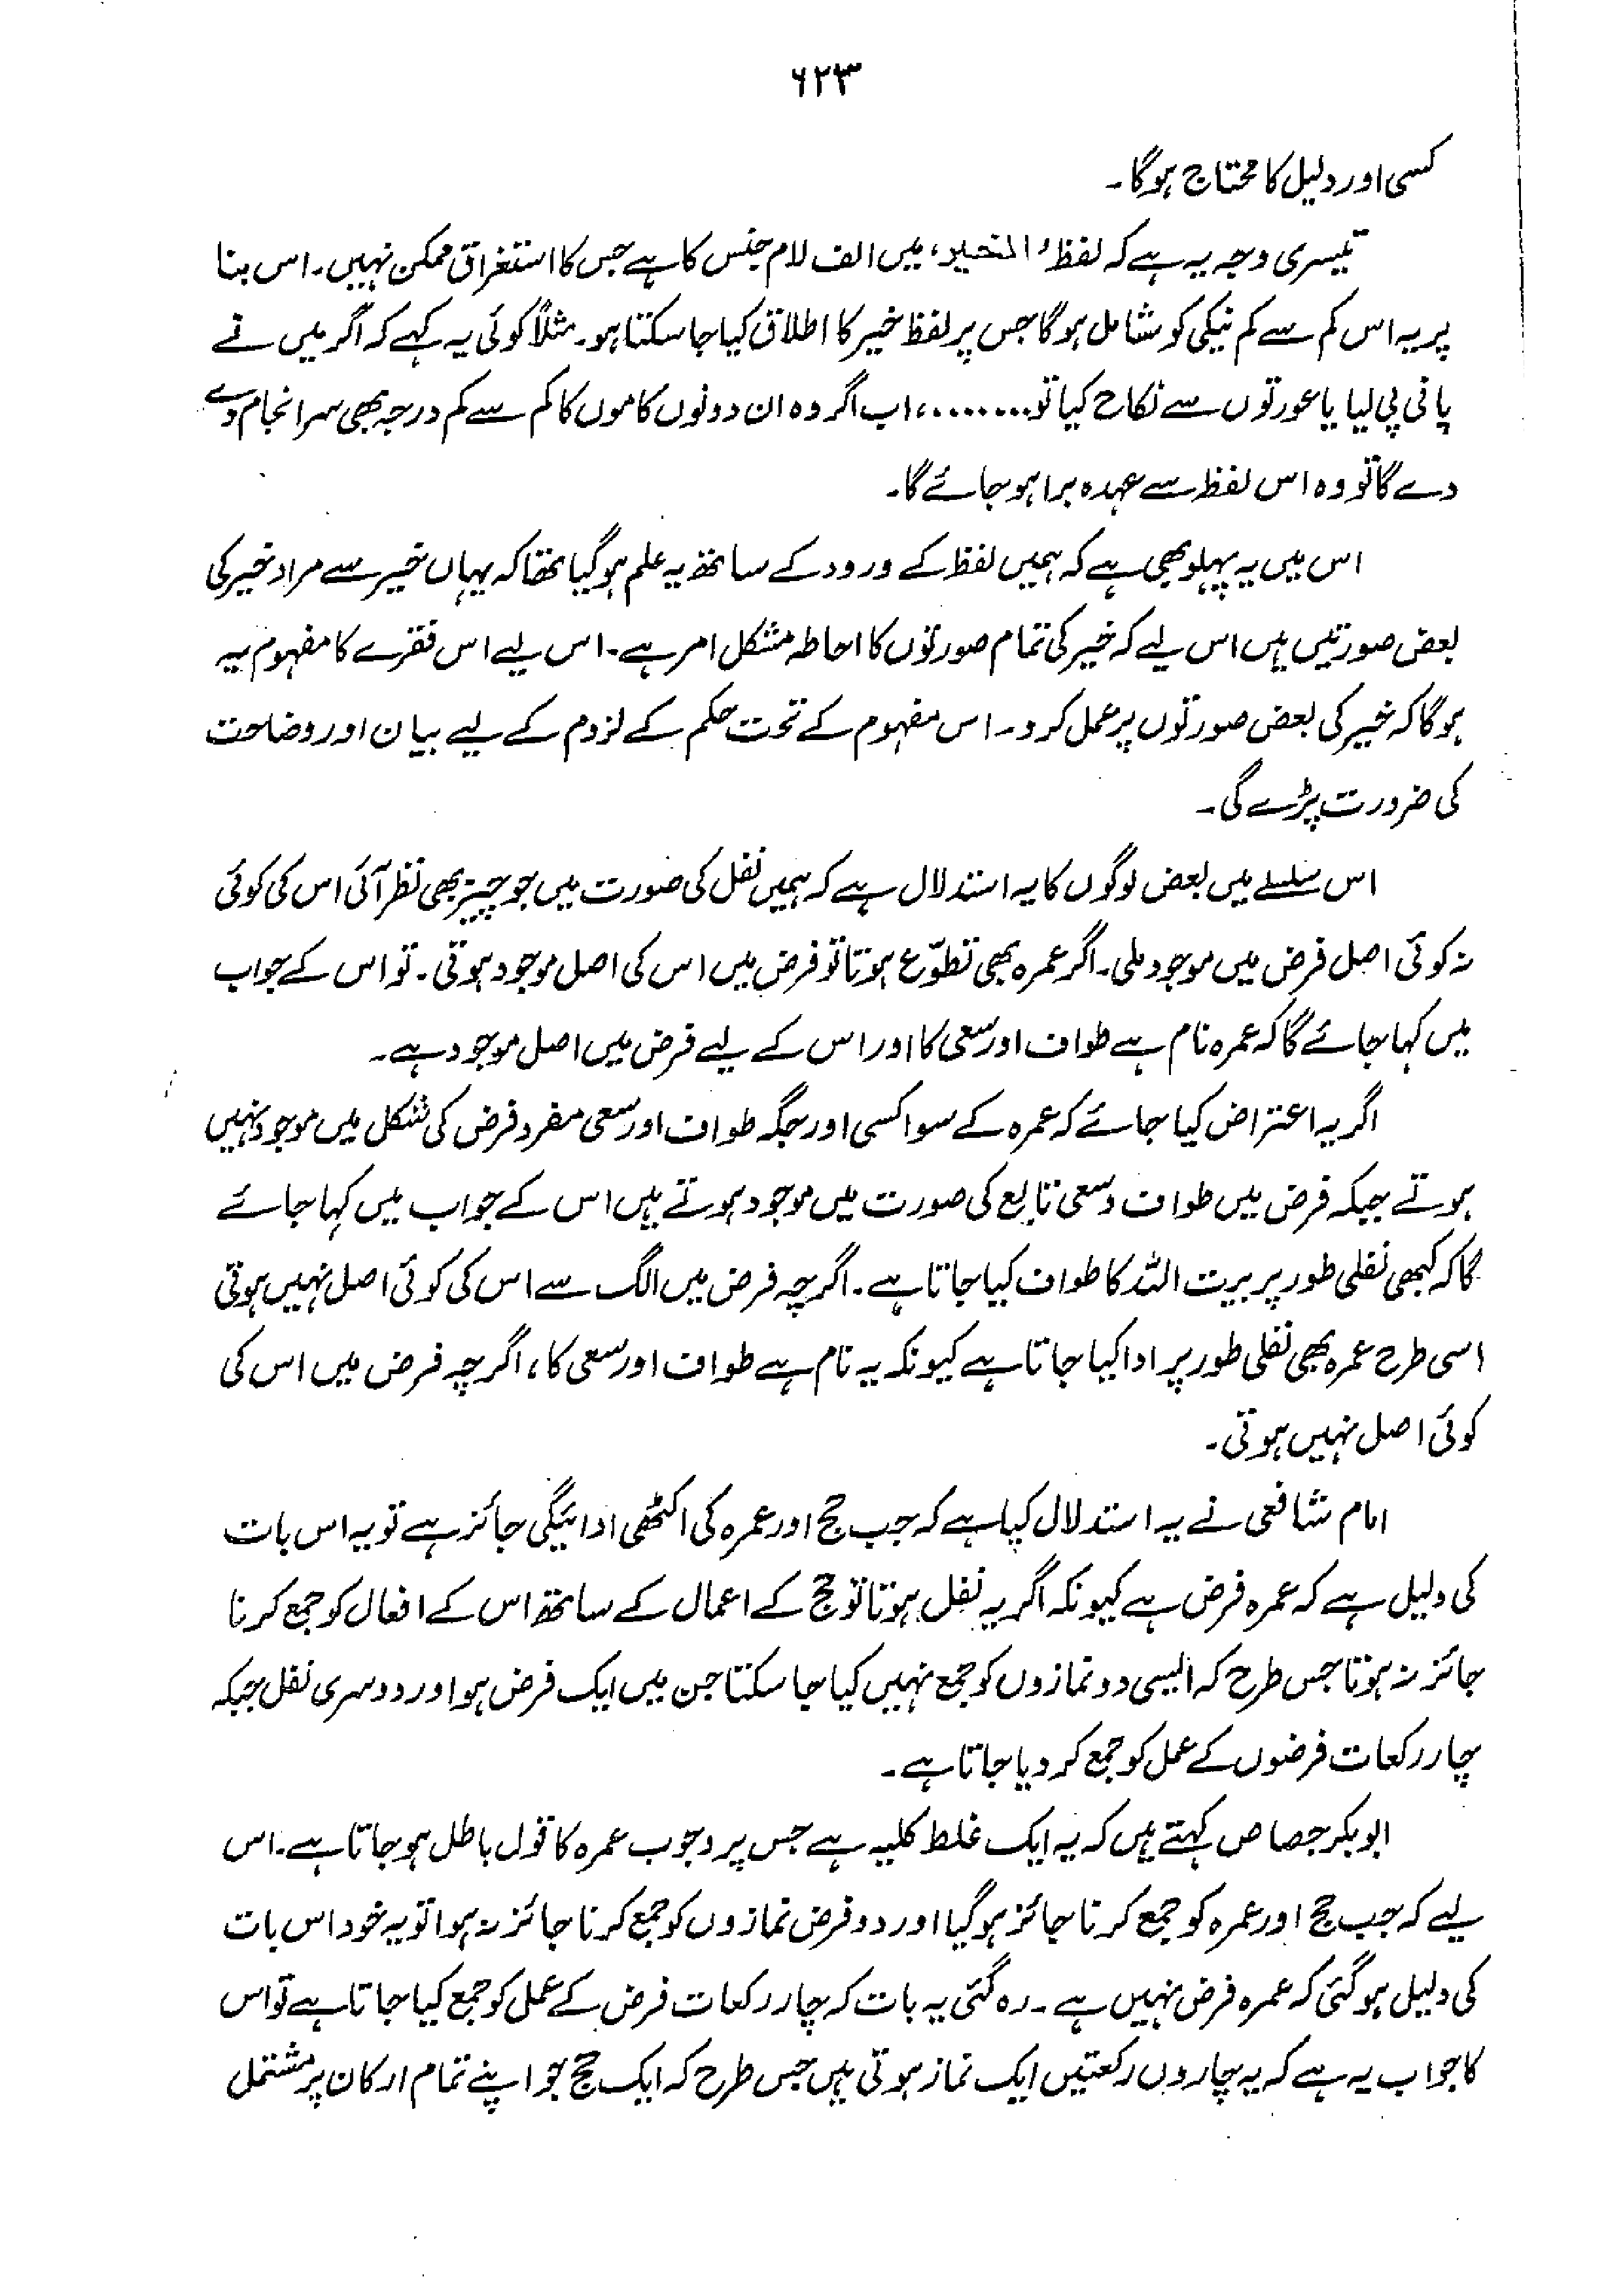 ۶۲۳
کسی اور دلیل کا محتاج ہوگا۔
تیسری وجہ یہ ہے کہ لفظ 'الخیر' میں الف لام جنس کا ہے جس کا استغراق ممکن نہیں۔ اس بنا
پر یہ اس کم سے کم نیکی کو شامل ہوگا جس پر لفظ خیر کا اطلاق کیا جا سکتا ہو۔ مثلاً کوئی یہ کہے کہ اگر میں نے
پانی پی لیا یا عورتوں سے نکاح کیا تو........، اب اگر وہ ان دونوں کاموں کا کم سے کم درجہ بھی سرانجام دے
دے گا تو وہ اس لفظ سے عہدہ برا ہو جائے گا۔
اس میں یہ پہلو بھی ہے کہ ہمیں لفظ کے ورود کے ساتھ یہ علم ہو گیا تھا کہ یہاں خیر سے مراد خیر کی
بعض صورتیں ہیں اس لیے کہ خیر کی تمام صورتوں کا احاطہ مشکل امر ہے۔ اس لیے اس فقرے کا مفہوم یہ
ہوگا کہ خیر کی بعض صورتوں پر عمل کرو۔ اس مفہوم کے تحت حکم کے لزوم کے لیے بیان اور وضاحت
کی ضرورت پڑے گی۔
اس سلسلے میں بعض لوگوں کا یہ استدلال ہے کہ ہمیں نفل کی صورت میں جو چیز بھی نظر آئی اس کی کوئی
نہ کوئی اصل فرض میں موجود ملی۔ اگر عمرہ بھی تطوّع ہوتا تو فرض میں اس کی اصل موجود ہوتی۔ تو اس کے جواب
میں کہا جائے گا کہ عمرہ نام ہے طواف اور سعی کا اور اس کے لیے فرض میں اصل موجود ہے۔
اگر یہ اعتراض کیا جائے کہ عمرہ کے سوا کسی اور جگہ طواف اور سعی مفرد فرض کی شکل میں موجود نہیں
ہوتے جبکہ فرض میں طواف وسعی تابع کی صورت میں موجود ہوتے ہیں اس کے جواب میں کہا جائے
گا کہ کبھی نفلی طور پر بیت اللہ کا طواف کیا جاتا ہے۔ اگرچہ فرض میں الگ سے اس کی کوئی اصل نہیں ہوتی
اسی طرح عمرہ بھی نفلی طور پر ادا کیا جاتا ہے کیونکہ یہ نام ہے طواف اور سعی کا، اگرچہ فرض میں اس کی
کوئی اصل نہیں ہوتی۔
امام شافعی نے یہ استدلال کیا ہے کہ جب حج اور عمرہ کی اکٹھی ادائیگی جائز ہے تو یہ اس بات
کی دلیل ہے کہ عمرہ فرض ہے کیونکہ اگر یہ نفل ہوتا تو حج کے اعمال کے ساتھ اس کے افعال کو جمع کرنا
جائز نہ ہوتا جس طرح کہ ایسی دو نمازوں کو جمع نہیں کیا جا سکتا جن میں ایک فرض ہو اور دوسری نفل جبکہ
چار رکعات فرضوں کے عمل کو جمع کر دیا جاتا ہے۔
ابوبکر جصاص کہتے ہیں کہ یہ ایک غلط کلیہ ہے جس پر وجوب عمرہ کا قول باطل ہو جاتا ہے۔ اس
لیے کہ جب حج اور عمرہ کو جمع کرنا جائز ہو گیا اور دو فرض نمازوں کو جمع کرنا جائز نہ ہوا تو یہ خود اس بات
کی دلیل ہو گئی کہ عمرہ فرض نہیں ہے۔ رہ گئی یہ بات کہ چار رکعات فرض کے عمل کو جمع کیا جاتا ہے تو اس
کا جواب یہ ہے کہ یہ چاروں رکعتیں ایک نماز ہوتی ہیں جس طرح کہ ایک حج جو اپنے تمام ارکان پر مشتمل